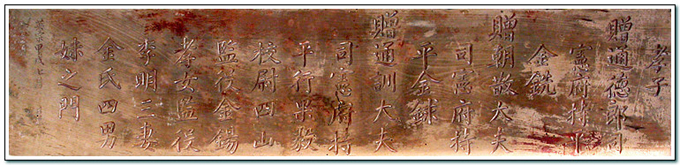 孝子
贈通德郎司
憲府持平
金銑
贈朝散大夫
司憲府持
平金銶
贈通訓大夫
司憲府持
平行果毅
校尉四山
監役金鍚
孝女監役
李明三妻
金氏四男
妹之門